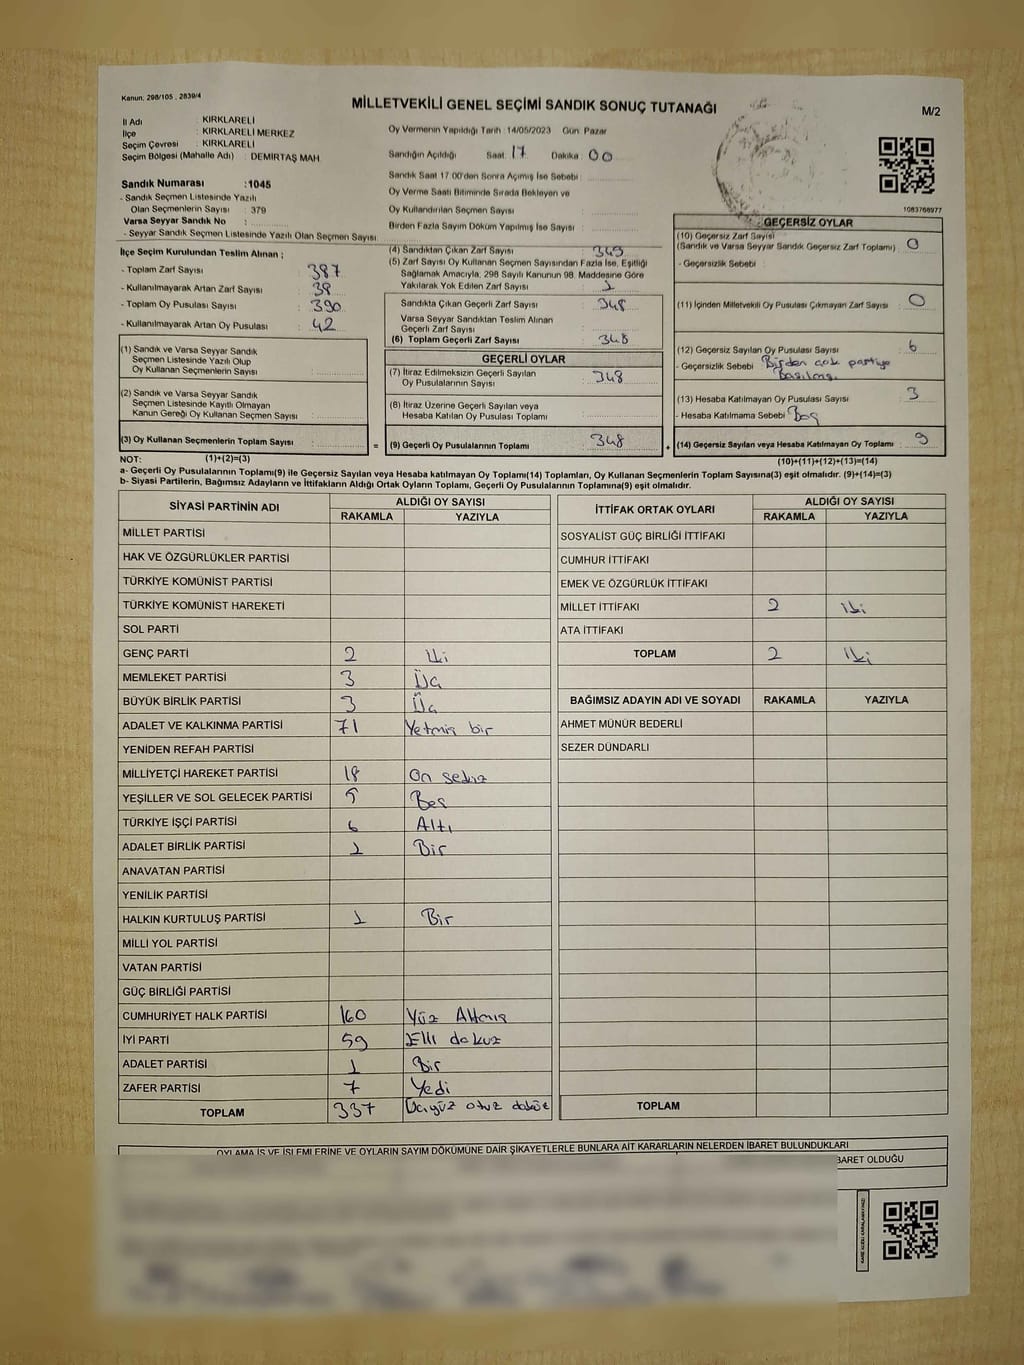 Kanun: 298/105 , 2839/4
MİLLETVEKİLİ GENEL SEÇİMİ SANDIK SONUÇ TUTANAĞI
M/2
İl Adı : KIRKLARELİ
İlçe : KIRKLARELİ MERKEZ
Seçim Çevresi : KIRKLARELİ
Seçim Bölgesi (Mahalle Adı) : DEMİRTAŞ MAH
Sandık Numarası :1045
- Sandık Seçmen Listesinde Yazılı
Olan Seçmenlerin Sayısı : 379
Varsa Seyyar Sandık No :
- Seyyar Sandık Seçmen Listesinde Yazılı Olan Seçmen Sayısı
Oy Vermenin Yapıldığı Tarih :14/05/2023 Gün Pazar
Sandığın Açıldığı Saat 17 Dakika 00
Sandık Saat 17.00'den Sonra Açılmış İse Sebebi :
Oy Verme Saati Bitiminde Sırada Bekleyen ve
Oy Kullandırılan Seçmen Sayısı
Birden Fazla Sayım Döküm Yapılmış İse Sayısı
1083768977
İlçe Seçim Kurulundan Teslim Alınan ;
- Toplam Zarf Sayısı : 387
- Kullanılmayarak Artan Zarf Sayısı : 38
- Toplam Oy Pusulası Sayısı : 390
- Kullanılmayarak Artan Oy Pusulası : 42
(1) Sandık ve Varsa Seyyar Sandık
Seçmen Listesinde Yazılı Olup
Oy Kullanan Seçmenlerin Sayısı :
(2) Sandık ve Varsa Seyyar Sandık
Seçmen Listesinde Kayıtlı Olmayan
Kanun Gereği Oy Kullanan Seçmen Sayısı :
(3) Oy Kullanan Seçmenlerin Toplam Sayısı :
(1)+(2)=(3)
(4) Sandıktan Çıkan Zarf Sayısı : 349
(5) Zarf Sayısı Oy Kullanan Seçmen Sayısından Fazla İse, Eşitliği
Sağlamak Amacıyla, 298 Sayılı Kanunun 98. Maddesine Göre
Yakılarak Yok Edilen Zarf Sayısı : 1
Sandıkta Çıkan Geçerli Zarf Sayısı : 348
Varsa Seyyar Sandıktan Teslim Alınan
Geçerli Zarf Sayısı :
(6) Toplam Geçerli Zarf Sayısı : 348
GEÇERLİ OYLAR
(7) İtiraz Edilmeksizin Geçerli Sayılan
Oy Pusulalarının Sayısı : 348
(8) İtiraz Üzerine Geçerli Sayılan veya
Hesaba Katılan Oy Pusulası Toplamı :
= (9) Geçerli Oy Pusulalarının Toplamı : 348 +
GEÇERSİZ OYLAR
(10) Geçersiz Zarf Sayısı
(Sandık ve Varsa Seyyar Sandık Geçersiz Zarf Toplamı) : 0
- Geçersizlik Sebebi :
(11) İçinden Milletvekili Oy Pusulası Çıkmayan Zarf Sayısı : 0
(12) Geçersiz Sayılan Oy Pusulası Sayısı : 6
- Geçersizlik Sebebi Birden çok partiye
basılması
(13) Hesaba Katılmayan Oy Pusulası Sayısı : 3
- Hesaba Katılmama Sebebi Boş
(14) Geçersiz Sayılan veya Hesaba Katılmayan Oy Toplamı : 9
(10)+(11)+(12)+(13)=(14)
NOT:
a- Geçerli Oy Pusulalarının Toplamı(9) ile Geçersiz Sayılan veya Hesaba katılmayan Oy Toplamı(14) Toplamları, Oy Kullanan Seçmenlerin Toplam Sayısına(3) eşit olmalıdır. (9)+(14)=(3)
b- Siyasi Partilerin, Bağımsız Adayların ve İttifakların Aldığı Ortak Oyların Toplamı, Geçerli Oy Pusulalarının Toplamına(9) eşit olmalıdır.
SİYASİ PARTİNİN ADI ALDIĞI OY SAYISI
RAKAMLA YAZIYLA
MİLLET PARTİSİ
HAK VE ÖZGÜRLÜKLER PARTİSİ
TÜRKİYE KOMÜNİST PARTİSİ
TÜRKİYE KOMÜNİST HAREKETİ
SOL PARTİ
GENÇ PARTİ 2 İki
MEMLEKET PARTİSİ 3 Üç
BÜYÜK BİRLİK PARTİSİ 3 Üç
ADALET VE KALKINMA PARTİSİ 71 Yetmiş bir
YENİDEN REFAH PARTİSİ
MİLLİYETÇİ HAREKET PARTİSİ 18 On sekiz
YEŞİLLER VE SOL GELECEK PARTİSİ 5 Beş
TÜRKİYE İŞÇİ PARTİSİ 6 Altı
ADALET BİRLİK PARTİSİ 1 Bir
ANAVATAN PARTİSİ
YENİLİK PARTİSİ
HALKIN KURTULUŞ PARTİSİ 1 Bir
MİLLİ YOL PARTİSİ
VATAN PARTİSİ
GÜÇ BİRLİĞİ PARTİSİ
CUMHURİYET HALK PARTİSİ 160 Yüz Altmış
İYİ PARTİ 59 Elli dokuz
ADALET PARTİSİ 1 Bir
ZAFER PARTİSİ 7 Yedi
TOPLAM 337 Üçyüz otuz
İTTİFAK ORTAK OYLARI ALDIĞI OY SAYISI
RAKAMLA YAZIYLA
SOSYALİST GÜÇ BİRLİĞİ İTTİFAKI
CUMHUR İTTİFAKI
EMEK VE ÖZGÜRLÜK İTTİFAKI
MİLLET İTTİFAKI 2 İki
ATA İTTİFAKI
TOPLAM 2 İki
BAĞIMSIZ ADAYIN ADI VE SOYADI RAKAMLA YAZIYLA
AHMET MÜNÜR BEDERLİ
SEZER DÜNDARLI
TOPLAM
OYLAMA İŞ VE İŞLEMLERİNE VE OYLARIN SAYIM DÖKÜMÜNE DAİR ŞİKAYETLERLE BUNLARA AİT KARARLARIN NELERDEN İBARET BULUNDUKLARI
BARET OLDUĞU